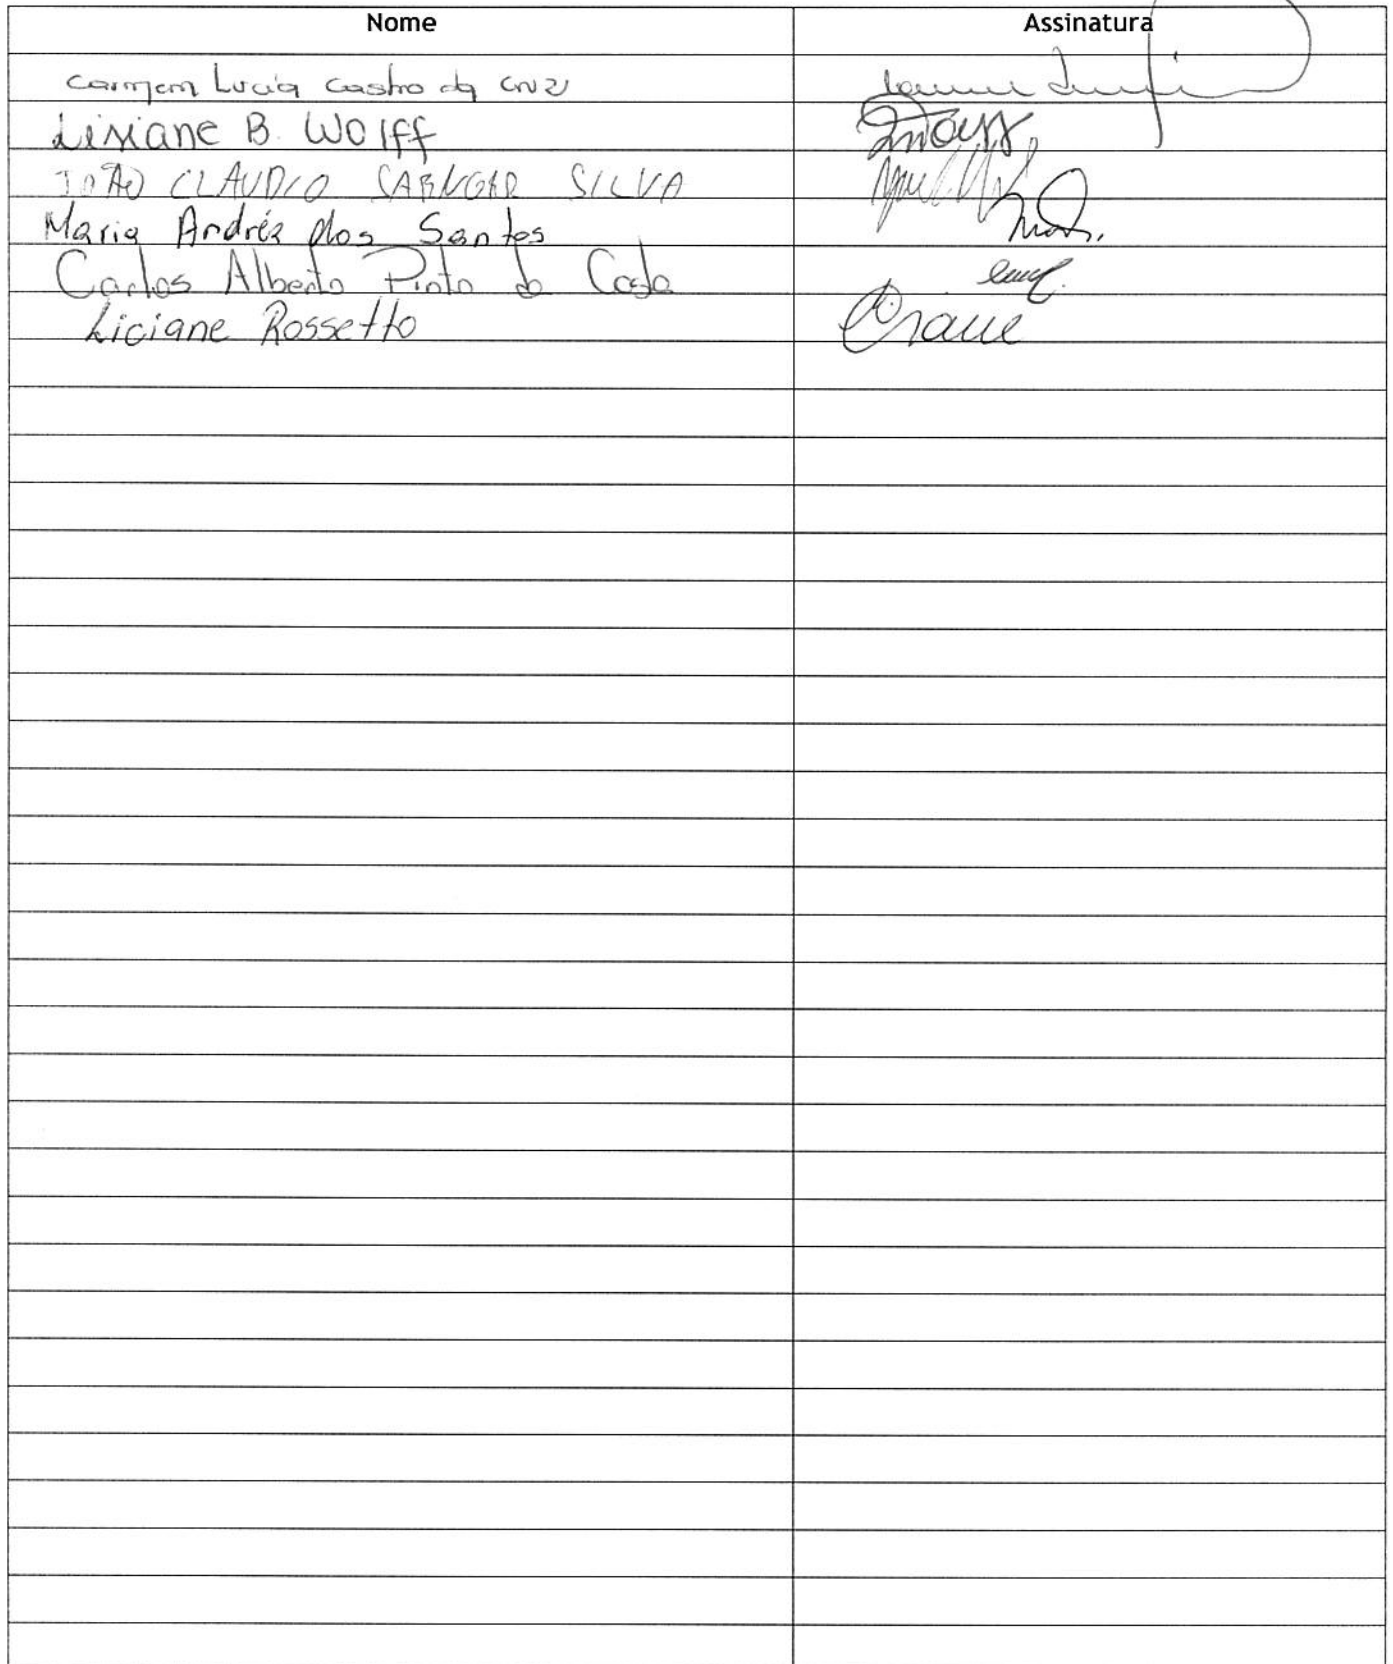 Nome Assinatura
Carmem Lucia Castro da Cruz
Lisiane B. Wolff
JOÃO CLAUDIO SILVA
Maria Andréa dos Santos
Carlos Alberto Pinto da Costa
Liciane Rossetto